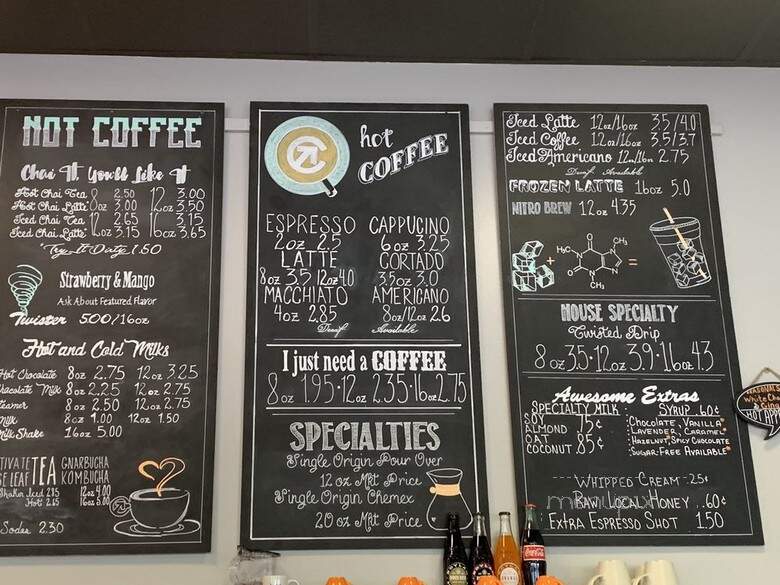 NOT COFFEE
Chai It You'll Like It
Hot Chai Tea 8oz 2.50 12oz 3.00
Hot Chai Latte 8oz 3.00 12oz 3.50
Iced Chai Tea 12oz 2.65 16oz 3.15
Iced Chai Latte 12oz 3.15 16oz 3.65
"Try It Dirty 1.50
Strawberry & Mango
Ask About Featured Flavor
Twister 5.00/16oz
Hot and Cold Milks
Hot Chocolate 8oz 2.75 12oz 3.25
Chocolate Milk 8oz 2.25 12oz 2.75
eamer 8oz 2.50 12oz 2.75
Milk 8oz 1.00 12oz 1.50
Milk Shake 16oz 5.00
TIVATE TEA GNARBUCHA
SE LEAF KOMBUCHA
Shaken Iced 2.15 12oz 4.00
Hot 2.65 16oz 5.00
Soda 2.30
hot
COFFEE
ESPRESSO CAPPUCINO
2oz 2.5 6oz 3.25
LATTE CORTADO
8oz 3.5 12oz 4.0 3.5oz 3.0
MACCHIATO AMERICANO
4oz 2.85 8oz/12oz 2.6
Decaf Available
I just need a COFFEE
8oz 1.95·12oz 2.35·16oz 2.75
SPECIALTIES
Single Origin Pour Over
12 oz Mkt Price
Single Origin Chemex
20 oz Mkt Price
Iced Latte 12oz/16oz 3.5/4.0
Iced Coffee 12oz/16oz 3.5/3.7
Iced Americano 12oz/16oz 2.75
Decaf Available
FROZEN LATTE 16oz 5.0
NITRO BREW 12oz 4.35
H₃C CH₃
+ =
CH₃
HOUSE SPECIALTY
Twisted Drip
8oz 3.5·12oz 3.9·16oz 4.3
Awesome Extras
SPECIALTY MILK: SYRUP 60¢
SOY 75¢ CHOCOLATE, VANILLA
ALMOND LAVENDER, CARAMEL
OAT 85¢ HAZELNUT, SPICY CHOCOLATE
COCONUT SUGAR-FREE AVAILABLE
WHIPPED CREAM··25¢
RAW LOCAL HONEY..60¢
EXTRA ESPRESSO SHOT 1.50
Coca-Cola